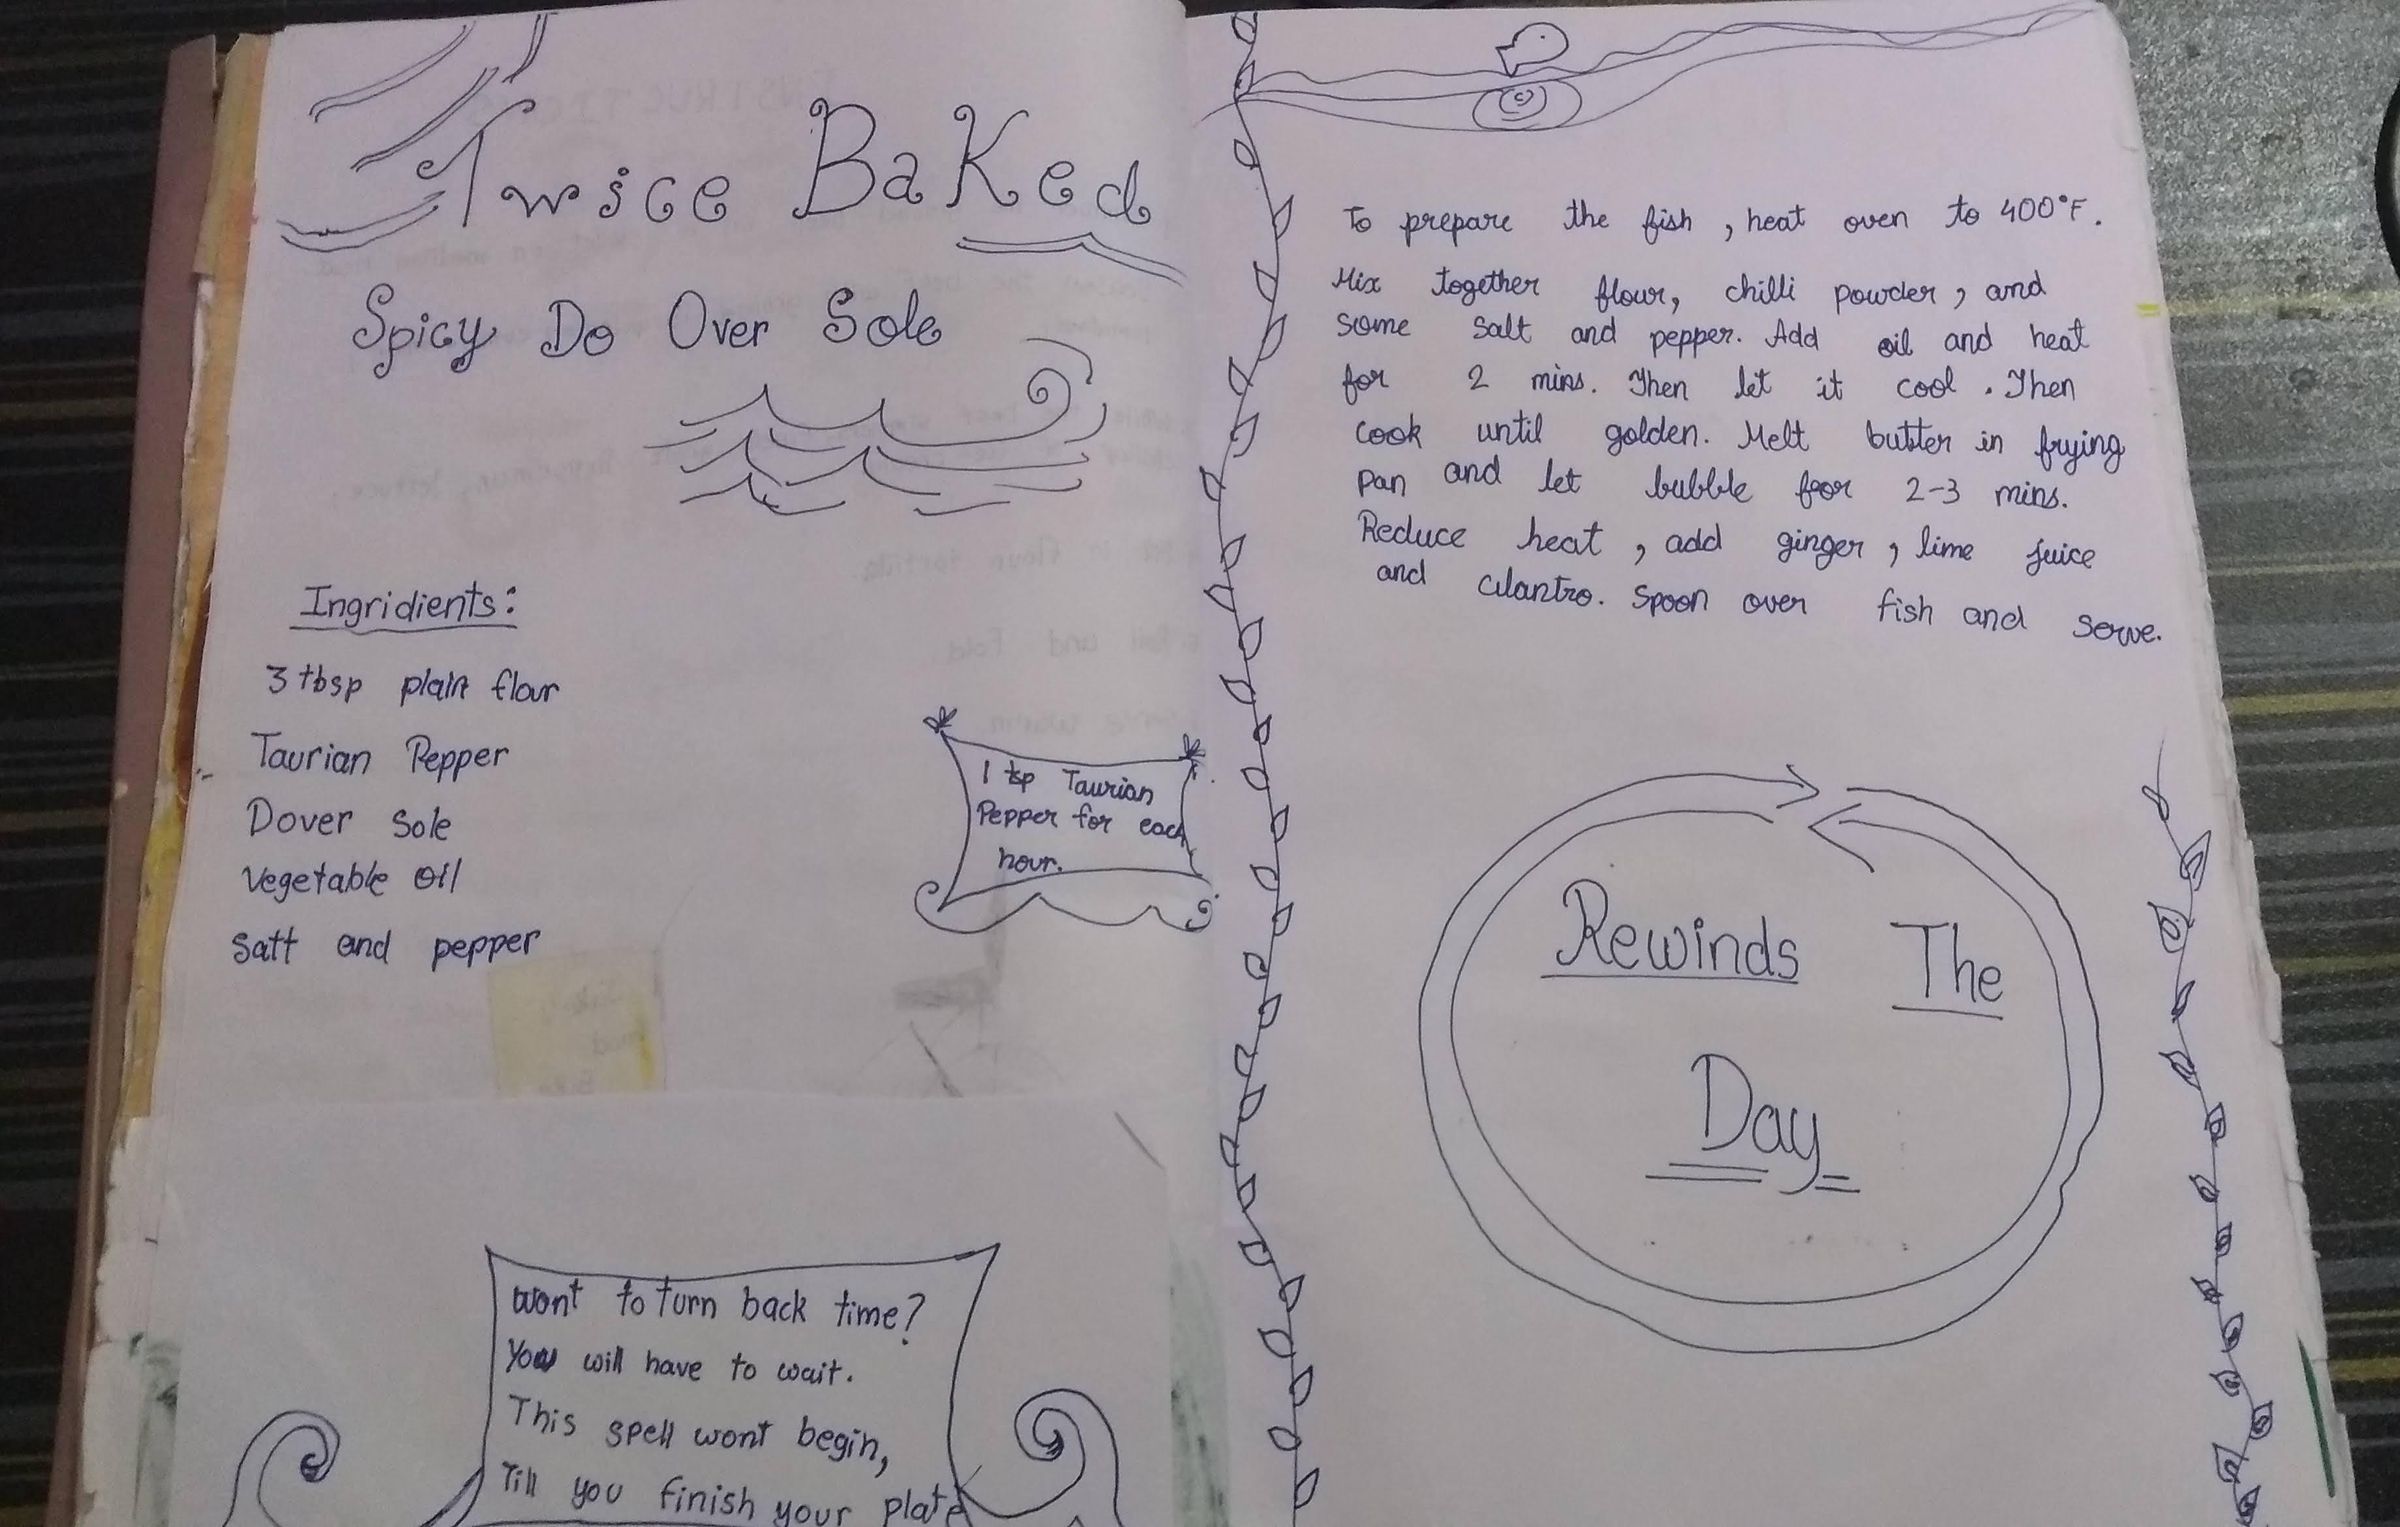 Twice Baked
Spicy Do Over Sole
Ingridients:
3 tbsp plain flour
Taurian Pepper
Dover Sole
Vegetable oil
Salt and pepper
1 tsp Taurian
Pepper for each
hour.
Want to turn back time?
You will have to wait.
This spell wont begin,
Till you finish your plate
To prepare the fish, heat oven to 400°F.
Mix together flour, chilli powder, and
some salt and pepper. Add oil and heat
for 2 mins. Then let it cool. Then
cook until golden. Melt butter in frying
pan and let bubble for 2-3 mins.
Reduce heat, add ginger, lime juice
and cilantro. Spoon over fish and serve.
Rewinds The
Day